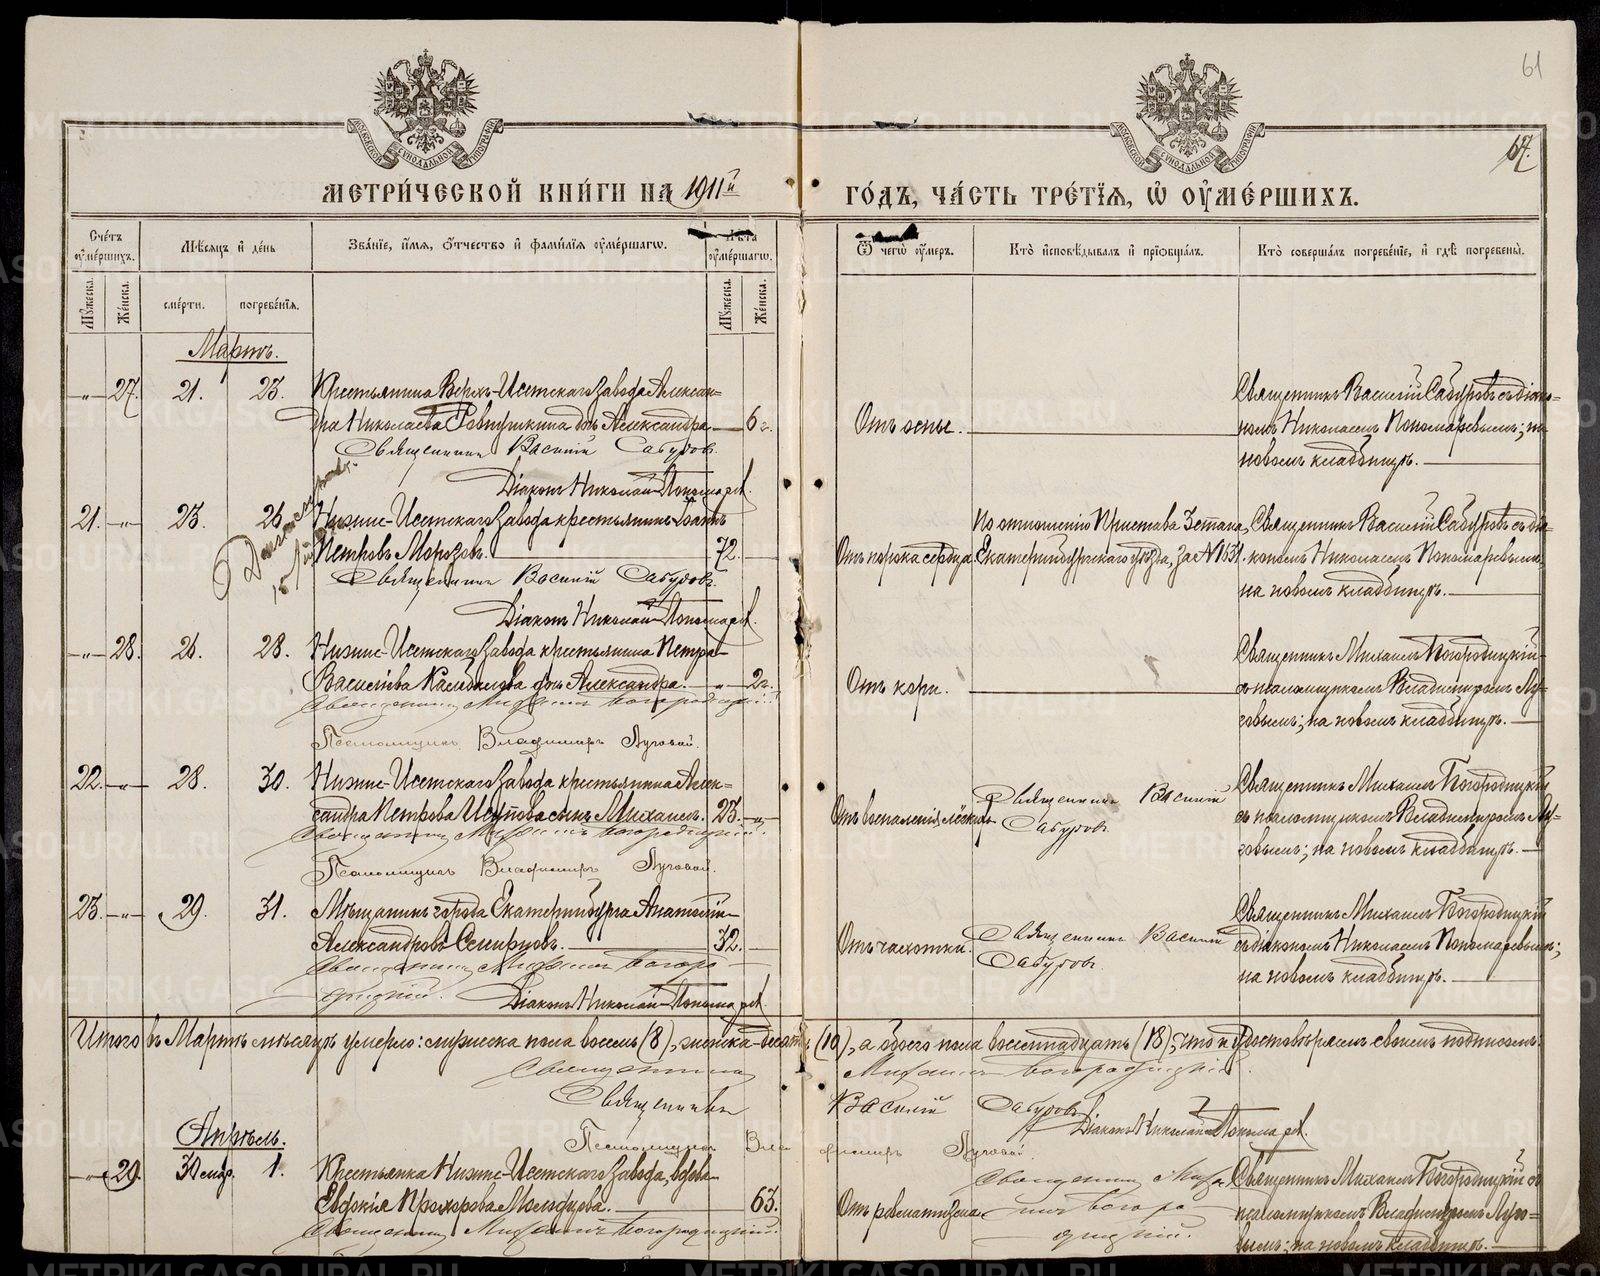 61
67.
МЕТРИ́ЧЕСКОЙ КНИ́ГИ НА 1911й ГО́ДЪ, ЧА́СТЬ ТРЕ́ТЇѦ, Ѡ҆ ОУ҆МЕ́РШИХЪ.
Сче́тъ оу҆ме́ршихъ.
Мѣ́сяцъ и҆ де́нь
Зва́нїе, и҆́мя, ѻ҆́тчество и҆ фами́лїя оу҆ме́ршагѡ.
Лѣ́та оу҆ме́ршагѡ.
Ѿ чегѡ̀ оу҆́меръ.
Кто̀ и҆сповѣ́дывалъ и҆ прїѡбща́лъ.
Кто̀ соверша́лъ погребе́нїе, и҆ гдѣ̀ погребены̀.
Мꙋ́жеска.
Же́нска.
сме́рти.
погребе́нїя.
Мꙋ́жеска.
Же́нска.
Мартъ.
-„- 27. 21. 23. Крестьянина Верхъ-Исетскаго завода Алексан=
дра Николаева дочь Александра 6 г.
Священникъ Василій Сабуровъ.
Діаконъ Николай Пономарев
Отъ оспы.
Священникъ Василій Сабуровъ съ діако=
номъ Николаемъ Пономаревымъ; на
новомъ кладбищѣ.
21. -„- 23. 26 Нижне-Исетскаго завода крестьянинъ Іоаннъ
Петровъ Морозовъ. 72.
Священникъ Василій Сабуровъ.
Діаконъ Николай Пономарев
Отъ порока сердца.
По отношенію Пристава 3 стана,
Екатеринбургскаго уѣзда, за № 1531.
Священникъ Василій Сабуровъ съ діа=
кономъ Николаемъ Пономаревымъ,
на новомъ кладбищѣ.
-„- 28. 26. 28. Нижне-Исетскаго завода крестьянина Петра
Василіева дочь Александра. -„- 2 г.
Священникъ Михаилъ Богородицкій
Псаломщикъ Владимиръ Луговой.
Отъ кори.
Священникъ Михаилъ Богородицкій
съ псаломщикомъ Владимиромъ Лу=
говымъ; на новомъ кладбищѣ.
22. -„- 28. 30. Нижне-Исетскаго завода крестьянина Алек=
сандра Петрова сынъ Михаилъ. 23. -„-
Священникъ Михаилъ Богородицкій.
Псаломщикъ Владимиръ Луговой.
Отъ воспаленія лёгкихъ
Священникъ Василій
Сабуровъ
Священникъ Михаилъ Богородицкій
съ псаломщикомъ Владимиромъ Лу=
говымъ; на новомъ кладбищѣ.
23. -„- 29. 31. Мѣщанинъ города Екатеринбурга Анатолій
Александровъ Смирновъ. 32.
Священникъ Михаилъ Богоро
дицкій. Діаконъ Николай Пономарев
Отъ чахотки.
Священникъ Василій
Сабуровъ
Священникъ Михаилъ Богородицкій
съ діакономъ Николаемъ Пономаревымъ;
на новомъ кладбищѣ.
Итого въ Мартѣ мѣсяцѣ умерло: мужеска пола восемь (8), женска десять (10), а обоего пола восемнадцать (18), что и удостовѣряемъ своимъ подписомъ:
Священникъ Михаилъ Богородицкій.
Священникъ Василій Сабуровъ
Діаконъ Николай Пономарев.
Псаломщикъ Владимиръ Луговой.
Апрѣль.
-„- 29. 30 мар. 1. Крестьянка Нижне-Исетскаго завода, вдова
Евдокія Прохорова 63.
Священникъ Михаилъ Богородицкій.
Отъ ревматизма
Священникъ Миха
илъ Богоро
дицкій.
Священникъ Михаилъ Богородицкій съ
псаломщикомъ Владимиромъ Луго=
вымъ; на новомъ кладбищѣ.
METRIKI.GASO-URAL.RU